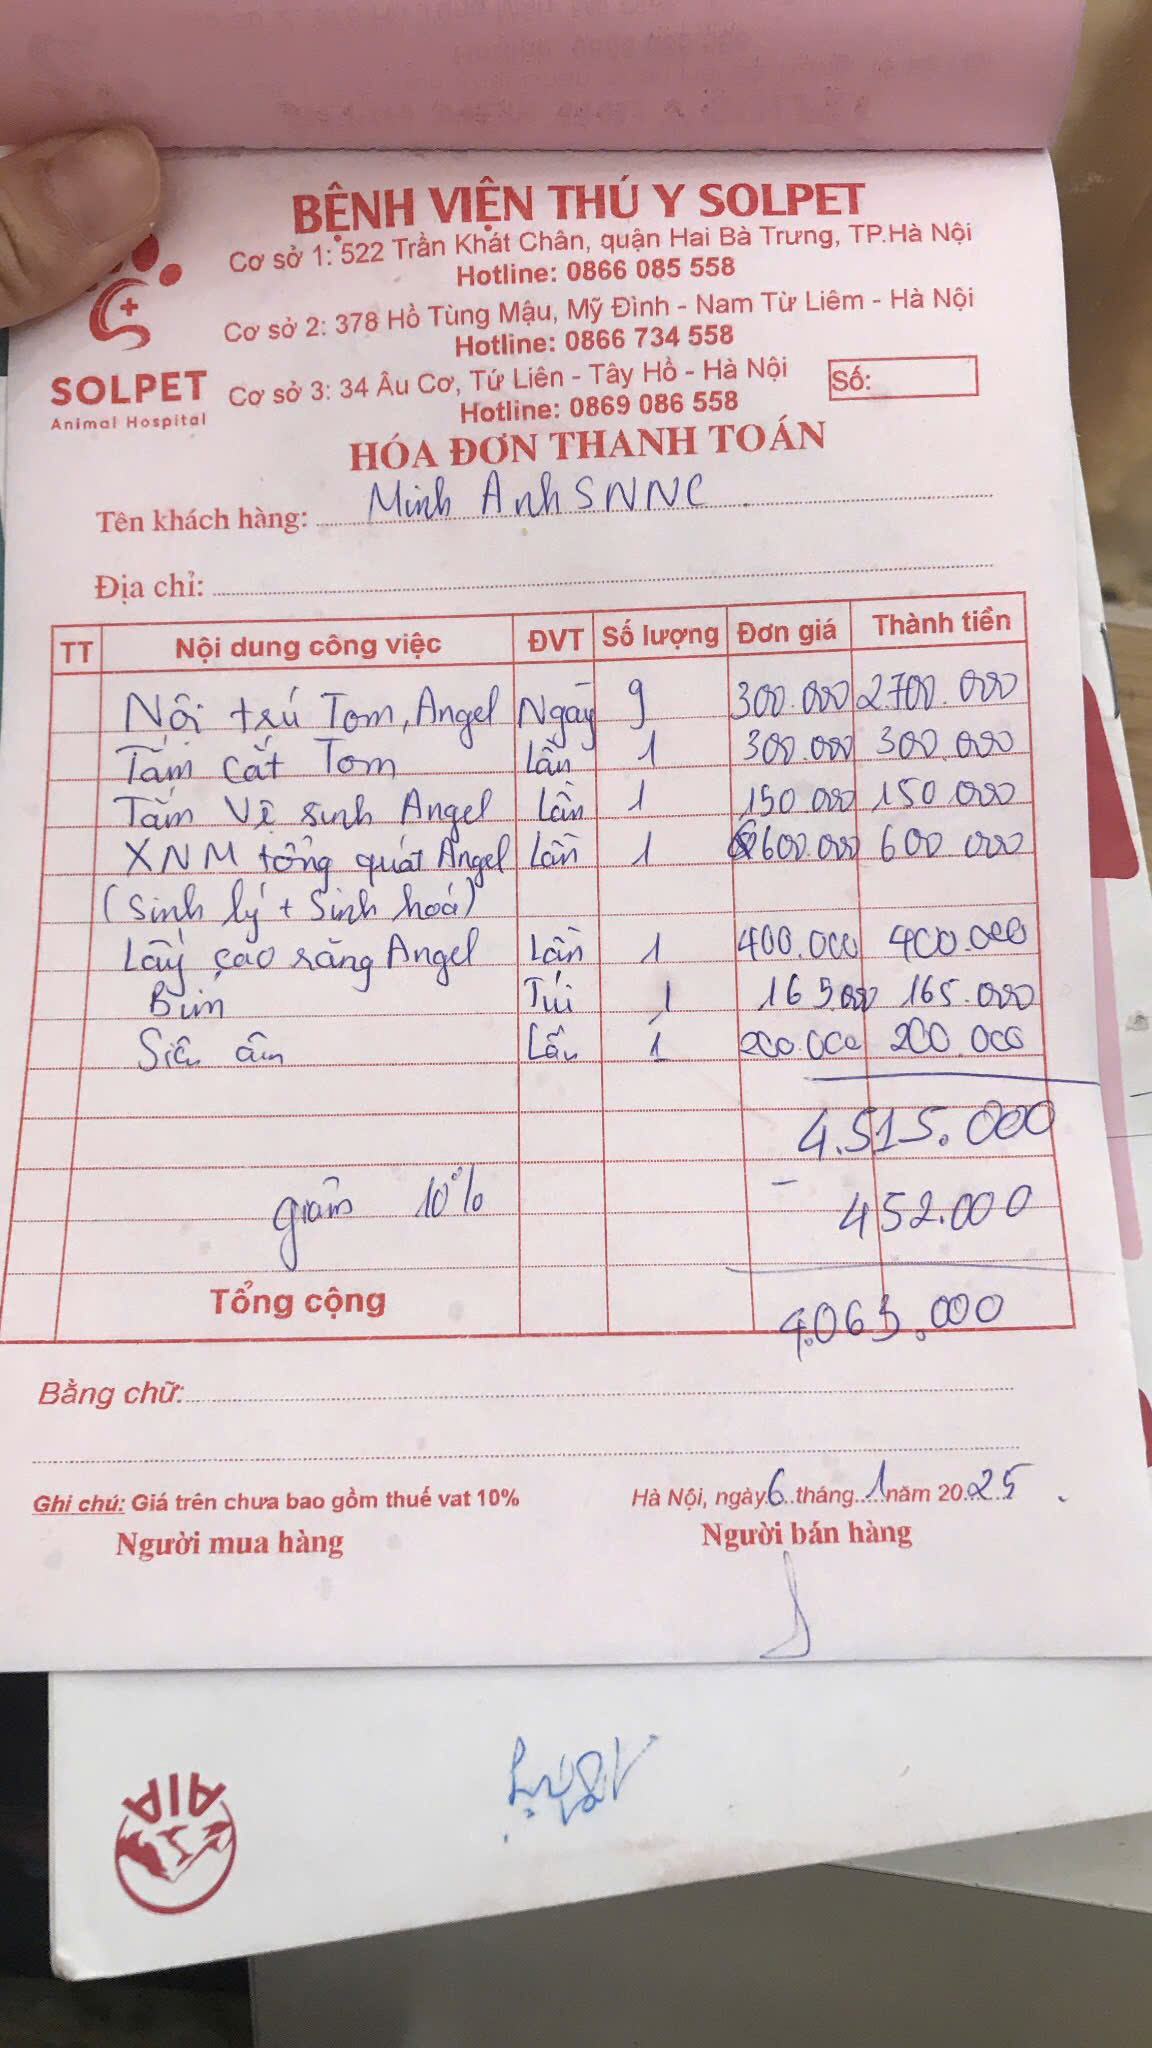 BỆNH VIỆN THÚ Y SOLPET
Cơ sở 1: 522 Trần Khát Chân, quận Hai Bà Trưng, TP.Hà Nội
Hotline: 0866 085 558
Cơ sở 2: 378 Hồ Tùng Mậu, Mỹ Đình - Nam Từ Liêm - Hà Nội
Hotline: 0866 734 558
Cơ sở 3: 34 Âu Cơ, Tứ Liên - Tây Hồ - Hà Nội
Hotline: 0869 086 558
SOLPET
Animal Hospital
Số:
HÓA ĐƠN THANH TOÁN
Tên khách hàng: Minh Anh SNNC
Địa chỉ:
TT Nội dung công việc ĐVT Số lượng Đơn giá Thành tiền
Nội trú Tom, Angel Ngày 9 300.000 2.700.000
Tắm cắt Tom Lần 1 300.000 300.000
Tắm Vệ sinh Angel Lần 1 150 000 150 000
XNM tổng quát Angel Lần 1 600.000 600 000
(Sinh lý + Sinh hoá)
Lấy cao răng Angel Lần 1 400.000 400.000
Bỉm Túi 1 165.000 165.000
Siêu âm Lần 1 200.000 200.000
4.515.000
giảm 10% - 452.000
Tổng cộng 4.063.000
Bằng chữ:
Ghi chú: Giá trên chưa bao gồm thuế vat 10%
Hà Nội, ngày 6 tháng 1 năm 2025
Người mua hàng
Người bán hàng
AIA